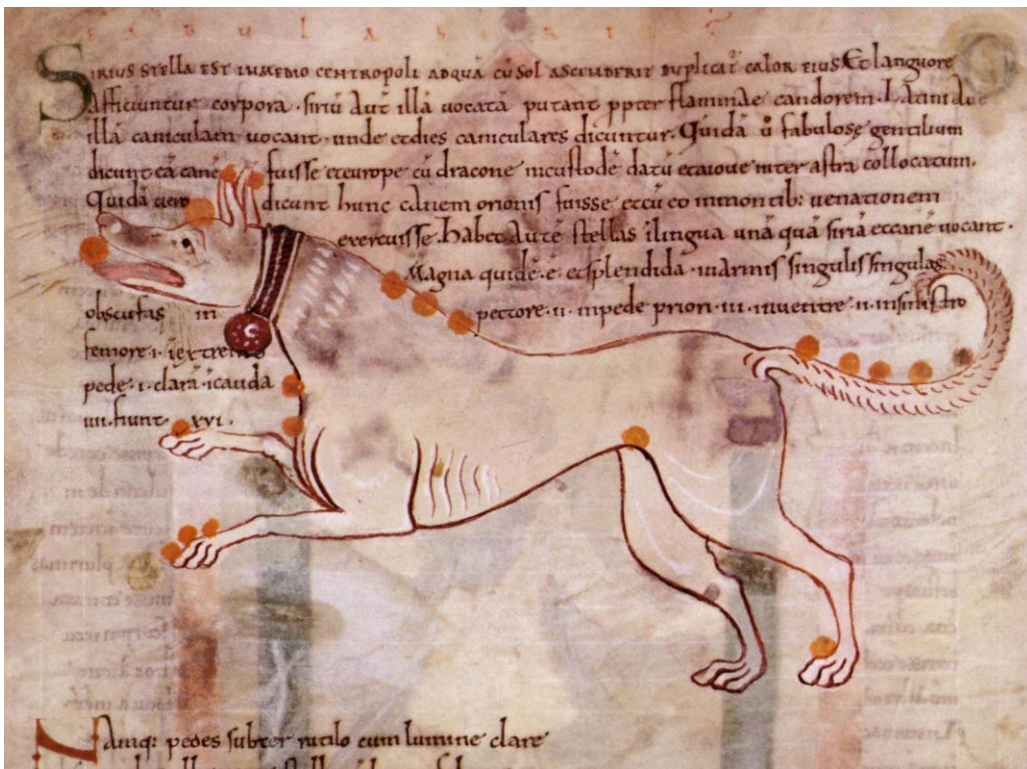 SIRIUS STELLA EST IN MEDIO CENTRO POLI AD QUĀ CŪ SOL ASCENDERIT DUPLICAT̄ CALOR EIUS Et languore
afficiuntur corpora · siriū aut̄ illā uocatā putant ppter flammae candorem · Latini aut
illā caniculam uocant · unde et dies caniculares dicuntur. Quidā ū fabulose gentilium
dicunt eā canē fuisse et europe cū dracone in custodē datū et a ioue inter astra collocatum.
Quidā uero dicunt hunc canem orionis fuisse et cū eo in montib: uenationem
exercuisse. Habet autē stellas i lingua unā quā siriā et canē uocant ·
Magna quidē · ē et splendida · in armis singulis singulas
obscuras in pectore · ii · in pede priori · iii · in uentre · ii · in sinistro
femore · i · i extremo
pede · i · clarā · i cauda
iiii · fiunt · XVI ·
Namq: pedes subter rutilo cum lumine claret